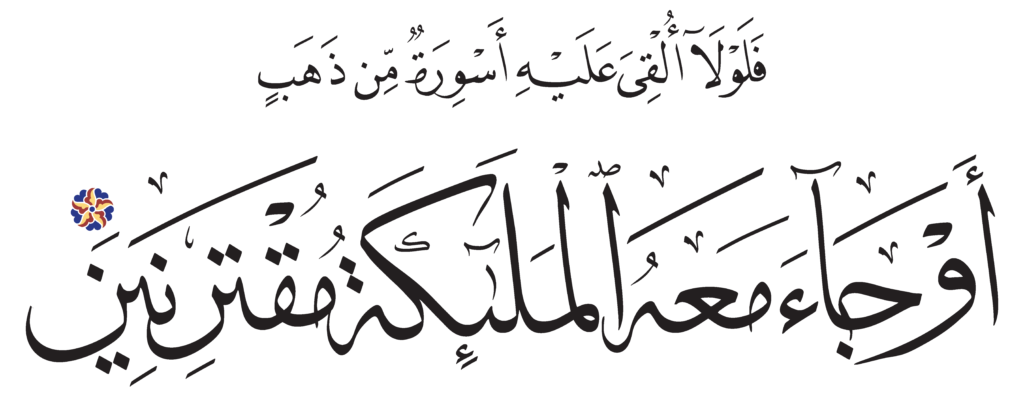 فَلَوْلَآ أُلْقِىَ عَلَيْهِ أَسْوِرَةٌ مِّن ذَهَبٍ
أَوْ جَآءَ مَعَهُ ٱلْمَلَٰٓئِكَةُ مُقْتَرِنِينَ